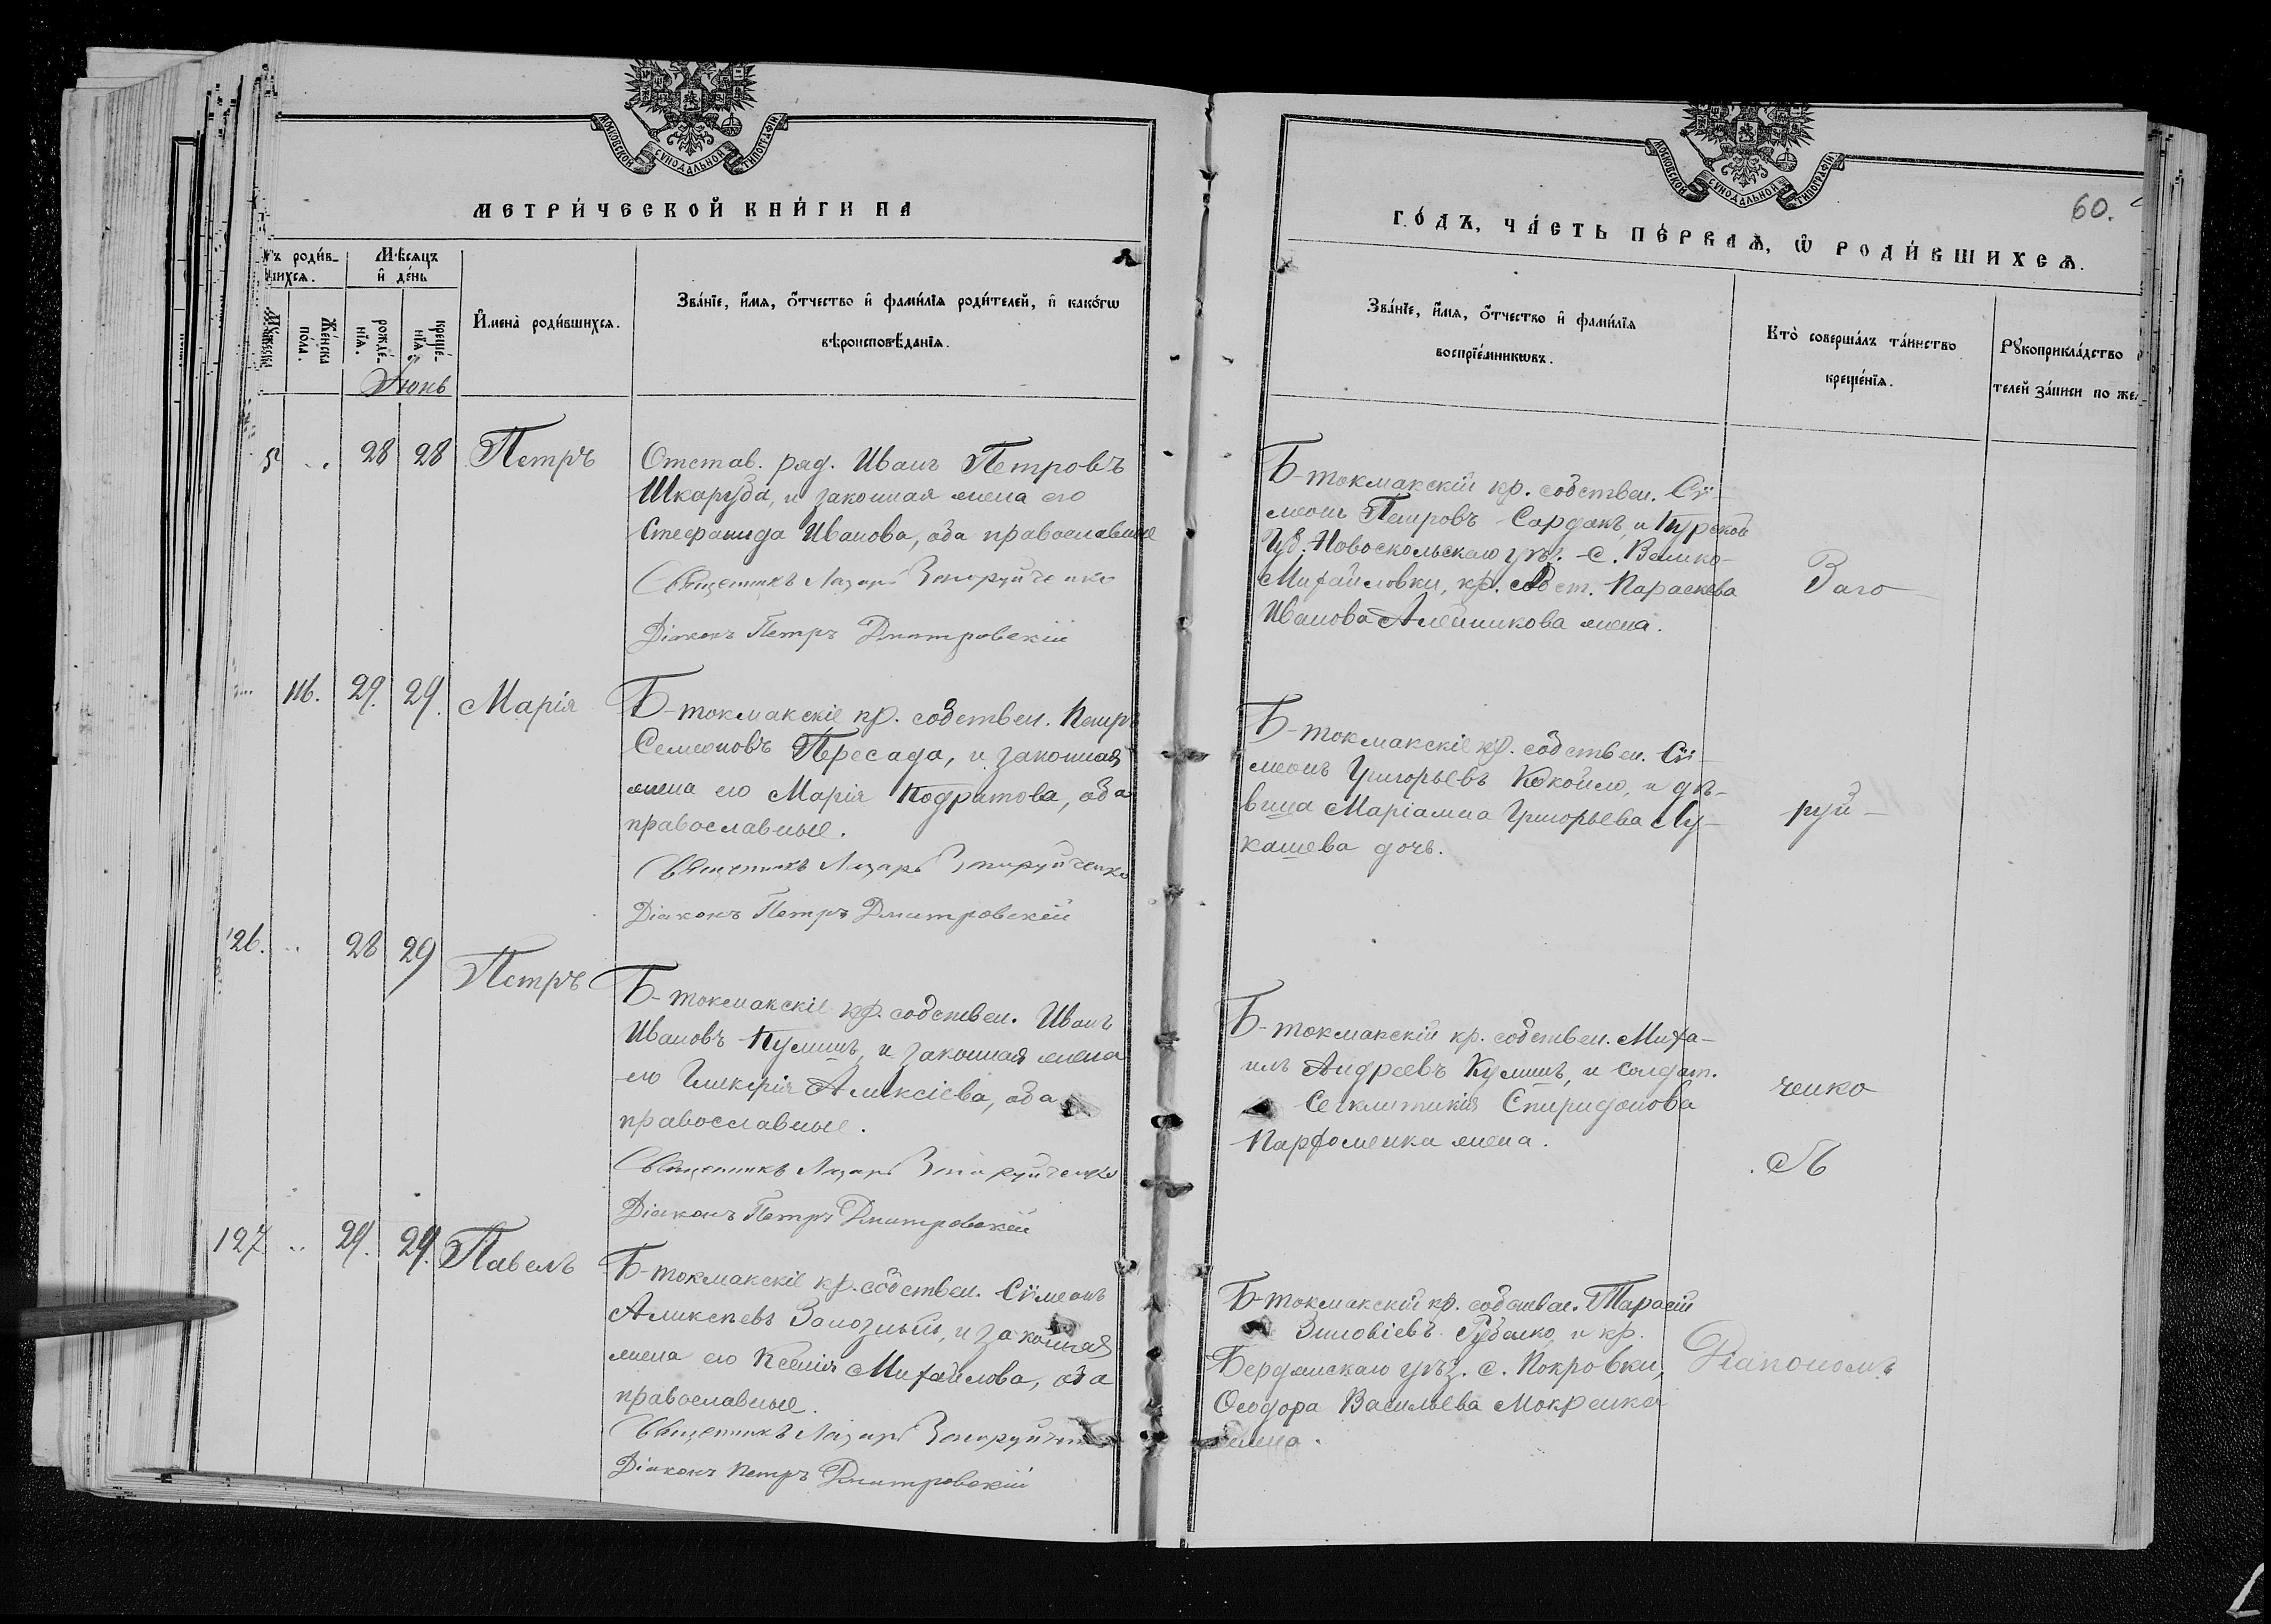 МОСКОВСКОЙ СУНОДАЛЬНОЙ ТИПОГРАФІИ
МЕТРИ́ЧЕСКОЙ КНИ́ГИ НА
родив-
шихся.
Мѣсяцъ
и де́нь
Му́жеска
Же́нска
по́ла.
рожде́-
нїя.
креще́-
нїя.
Имена̀ роди́вшихся.
Зва́нїе, имя, отчество и фами́лїя роди́телей, и како́гѡ
вѣроисповѣ́данїя.
Іюнь
5 .. 28 28 Петръ
Отстав. ряд. Иванъ Петровъ
Шкаруба, и законная жена его
Стефанида Иванова, оба православные
Священникъ Лазарь Загоруйченко
Діаконъ Петръ Дмитровскій
116. 29. 29. Марія
Б-токмакскіе кр. собствен. Петръ
Семеоновъ Пересада, и законная
жена его Марія Кодратова, оба
православные.
Священникъ Лазарь Загоруйченко
Діаконъ Петръ Дмитровскій
126. .. 28 29 Петръ
Б-токмакскіе кр. собствен. Иванъ
Ивановъ Кулишъ, и законная жена
его Гликерія Алексіева, оба
православные.
Священникъ Лазарь Загоруйченко
Діаконъ Петръ Дмитровскій
127 .. 29. 29. Павелъ
Б-токмакскіе кр. собствен. Сѵмеонъ
Алексеевъ и законная
жена его Ксенія Михайлова, оба
православные.
Священникъ Лазарь
Діаконъ Петръ Дмитровскій
МОСКОВСКОЙ СУНОДАЛЬНОЙ ТИПОГРАФІИ
60.
ГО́ДЪ, ЧА́СТЬ ПЕ́РВАЯ, Ѡ РОДИ́ВШИХСЯ.
Зва́нїе, имя, отчество и фами́лїя
воспрїе́мникѡвъ.
Кто̀ соверша́лъ та́инство
креще́нїя.
Рукоприкла́дство
телей за́писи по же
Б-токмакскій кр. собствен. Сѵ-
меонъ Петровъ Сардакъ, и Курской
Губ. Новоскольскаго уѣз. с. Велико-
Михайловки, кр. собст. Параскева
Иванова Алейникова жена.
Заго-
Б-токмакскіе кр. собствен. Сѵ-
меонъ Григорьевъ и дѣ-
вица Маріамна Григорьева Лу-
кашева дочь.
руй-
Б-токмакскій кр. собствен. Миха-
илъ Андреевъ Кулишъ, и солдат.
Сегклитикія Спиридонова
Парфоменка жена.
ченко
съ
Б-токмакскій кр. собствен. Тарасій
Зиновіевъ и кр.
Бердянскаго уѣз. с. Покровки,
Ѳеодора Васильева Мокренка
жена.
Діакономъ